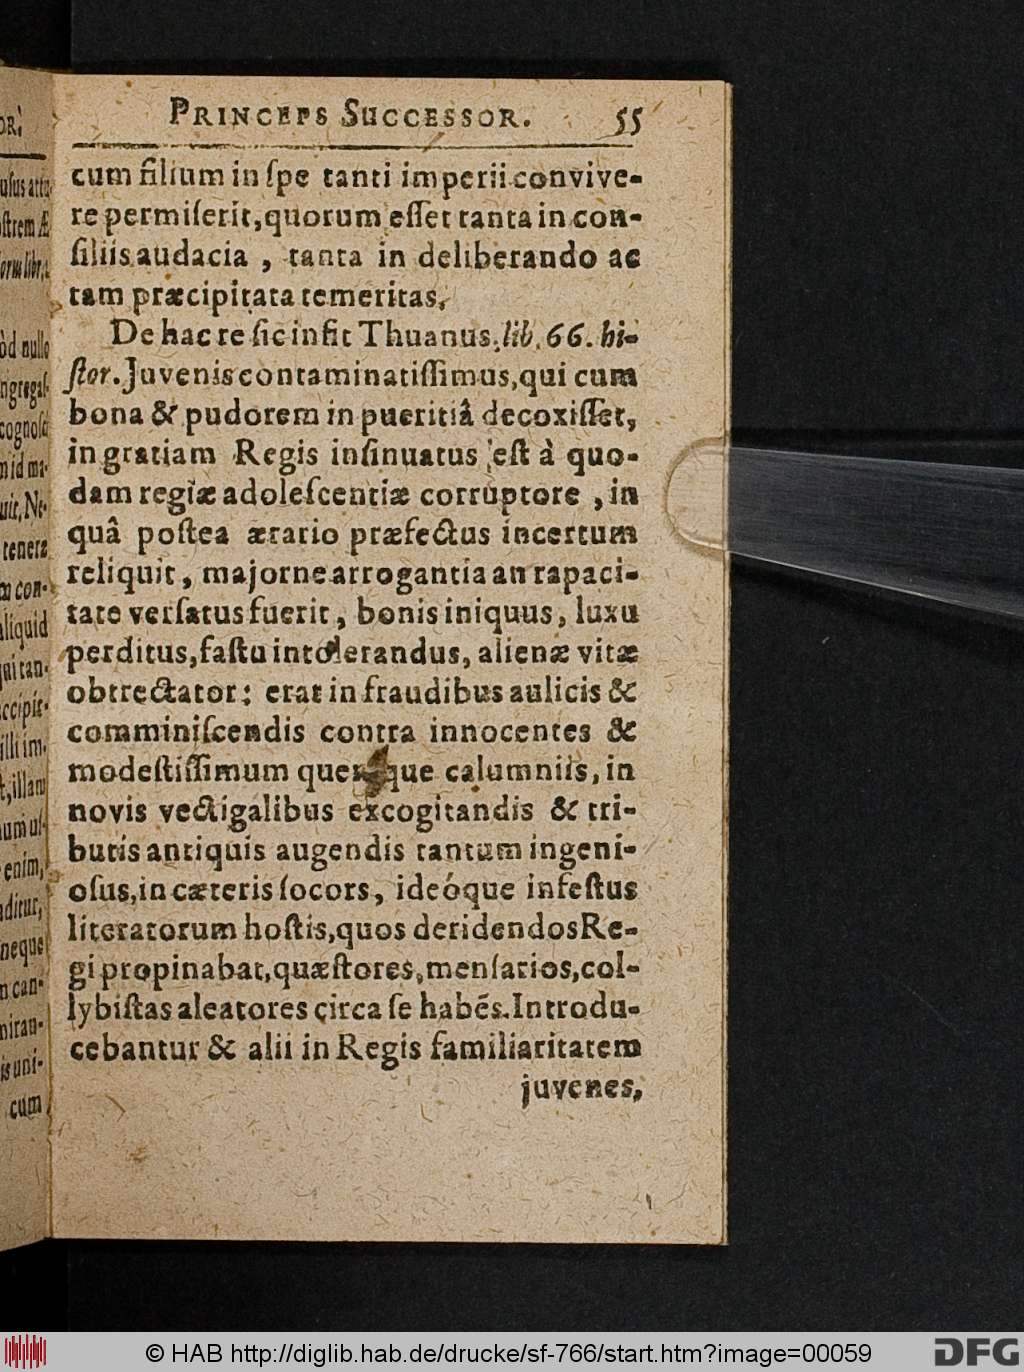 PRINCEPS SUCCESSOR. 55
cum filium in ſpe tanti imperii convive-
re permiſerit, quorum eſſet tanta in con-
ſiliis audacia, tanta in deliberando ac
tam præcipitata temeritas.
De hac re ſic infit Thuanus. lib. 66. hi-
ſtor. Juvenis contaminatiſſimus, qui cum
bona & pudorem in pueritiâ decoxiſſet,
in gratiam Regis inſinuatus eſt à quo-
dam regiæ adoleſcentiæ corruptore, in
quâ poſtea ærario præfectus incertum
reliquit, majorne arrogantia an rapaci-
tate verſatus fuerit, bonis iniquus, luxu
perditus, faſtu intolerandus, alienæ vitæ
obtrectator: erat in fraudibus aulicis &
comminiſcendis contra innocentes &
modeſtiſſimum quemque calumniis, in
novis vectigalibus excogitandis & tri-
butis antiquis augendis tantum ingeni-
oſus, in cæteris ſocors, ideóque infeſtus
literatorum hoſtis, quos deridendos Re-
gi propinabat, quæſtores, menſarios, col-
lybiſtas aleatores circa ſe habẽs. Introdu-
cebantur & alii in Regis familiaritatem
juvenes,
OR.
uſus
ſtrem Æ
òd nullo
cognoſc
n id ma-
uit, Ne-
tenera
m con-
aliquid
qui tan-
ccipit-
illi im-
t, illam
num uſ-
enim,
ditur,
neque
n can-
miran-
is uni-
cum
© HAB http://diglib.hab.de/drucke/sf-766/start.htm?image=00059
DFG